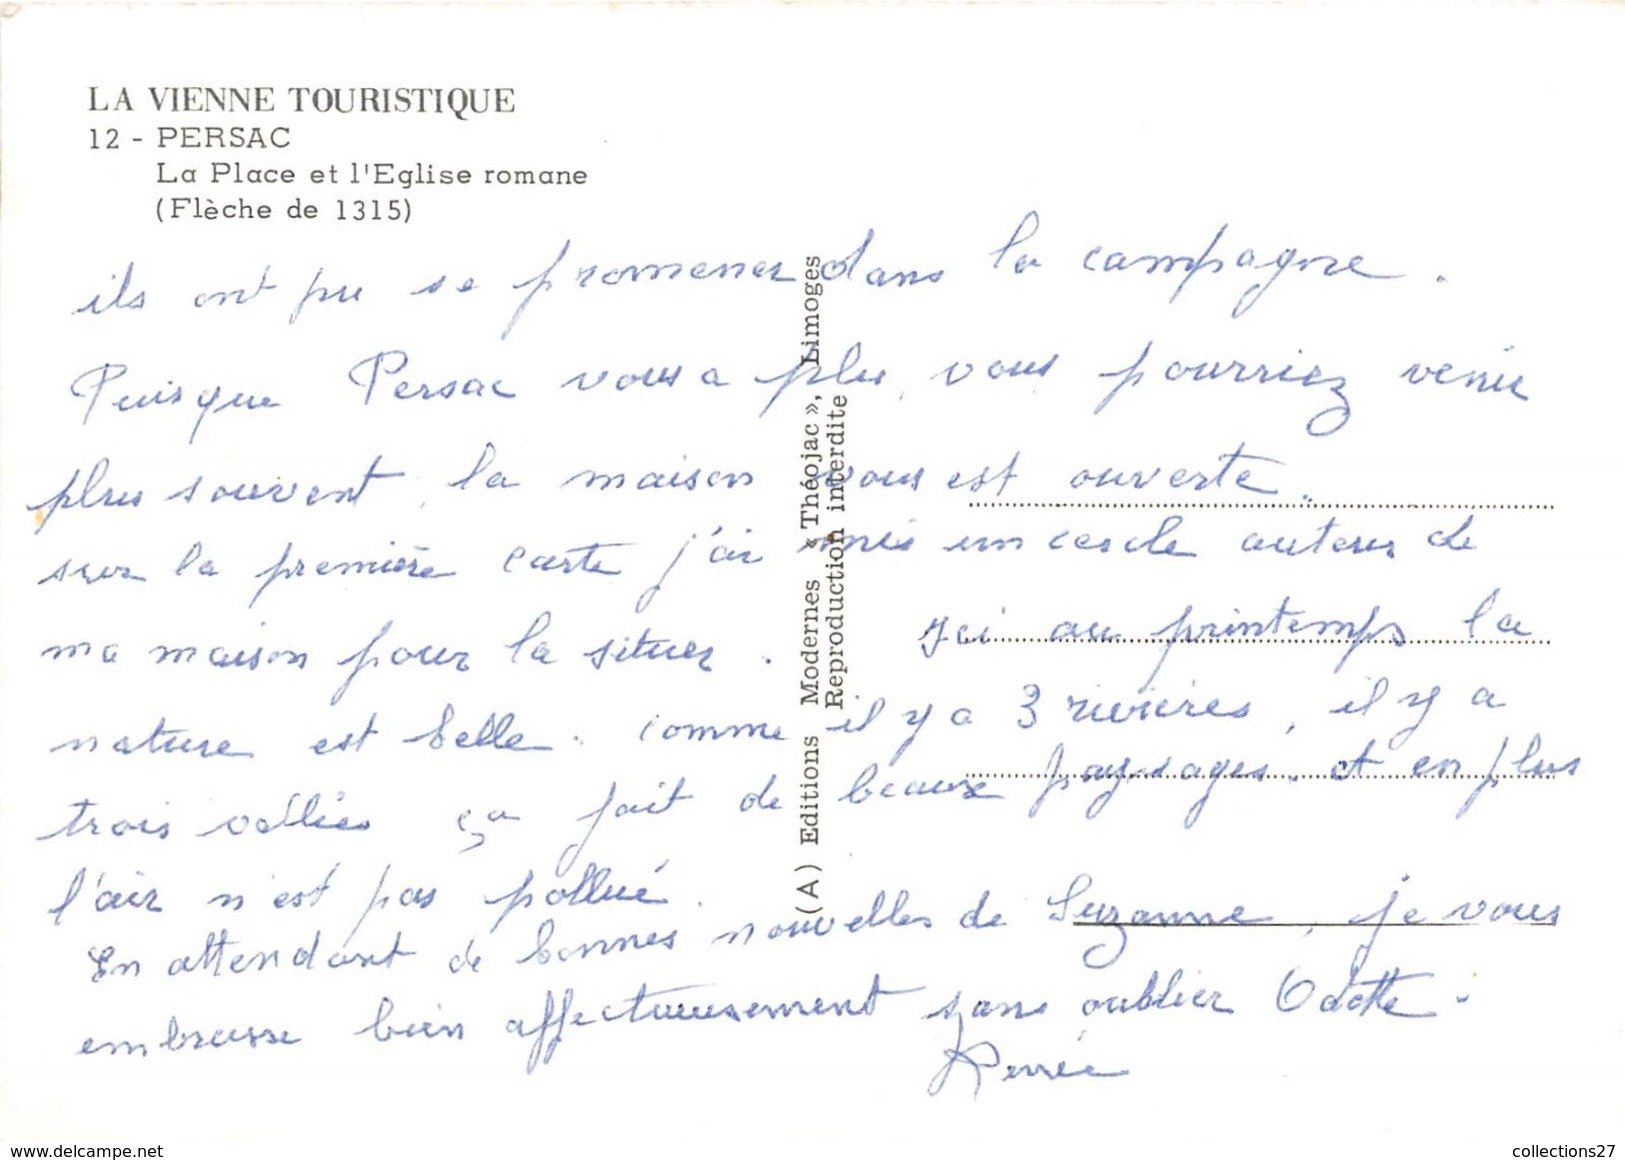 LA VIENNE TOURISTIQUE
12 - PERSAC
La Place et l'Eglise romane
(Flèche de 1315)
ils ont pu se promener dans la campagne.
Puisque Persac vous a plu, vous pourriez venir
plus souvent, la maison vous est ouverte.
sur la première carte j'ai mis un cercle autour de
ma maison pour la situer. Ici au printemps la
nature est belle. comme il y a 3 rivières, il y a
trois vallées ça fait de beaux paysages. et en plus
l'air n'est pas pollué.
En attendant de bonnes nouvelles de Suzanne, je vous
embrasse bien affectueusement sans oublier Odette.
Renée
(A) Editions Modernes « Théojac », Limoges
Reproduction interdite
delcampe.net
collections27